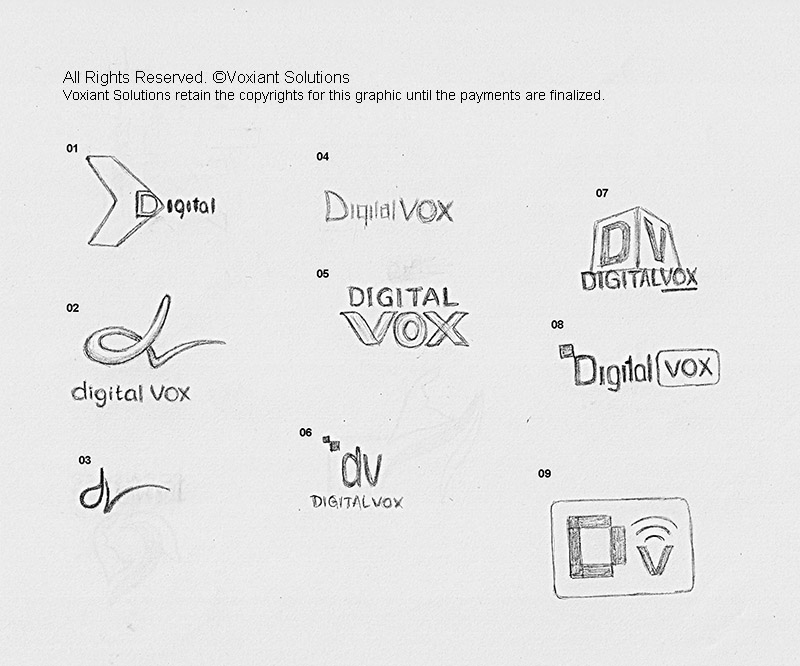 All Rights Reserved. ©Voxiant Solutions
Voxiant Solutions retain the copyrights for this graphic until the payments are finalized.
01
Digital
02
digital vox
03
dv
04
Digital VOX
05
DIGITAL
VOX
06
dv
DIGITAL VOX
07
DV
DIGITALVOX
08
Digital VOX
09
DV